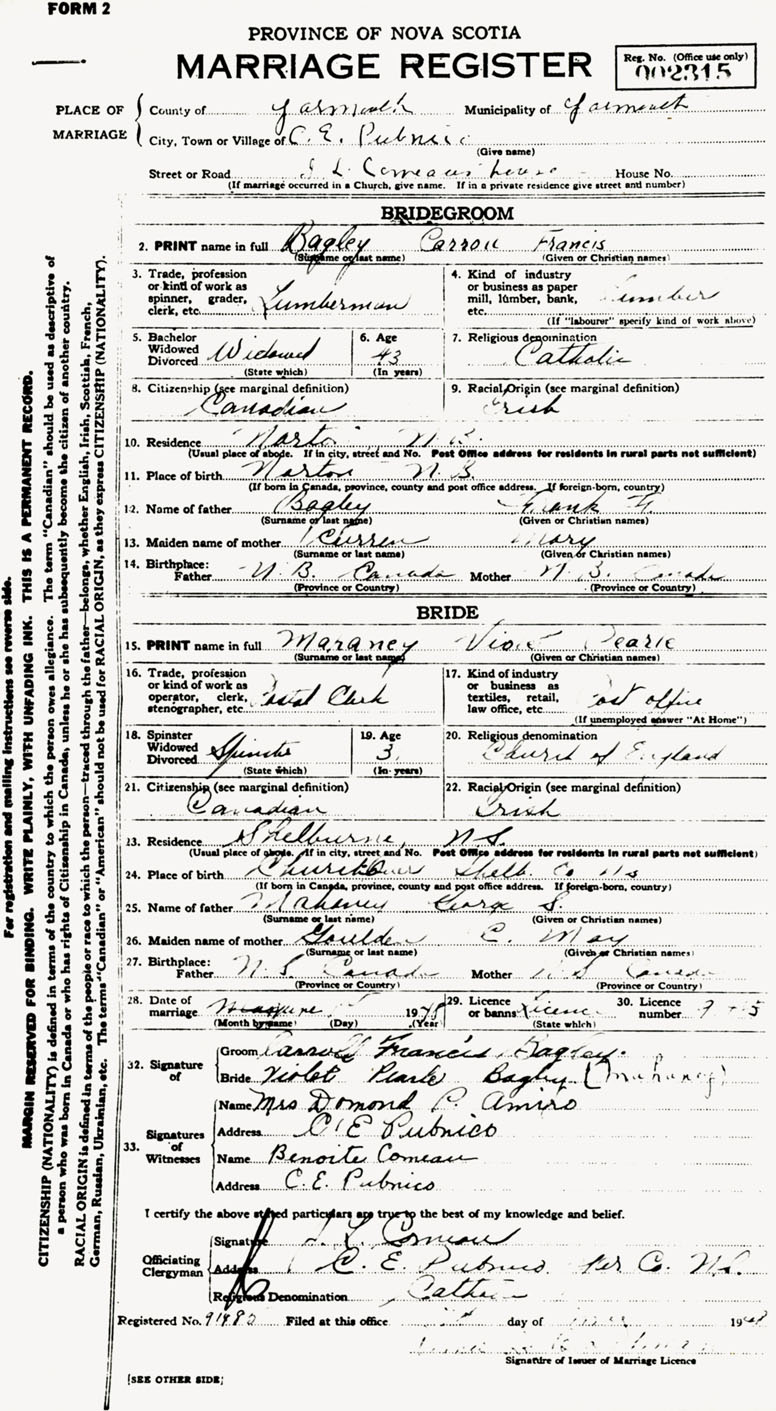 FORM 2
PROVINCE OF NOVA SCOTIA
MARRIAGE REGISTER
Reg. No. (Office use only)
002315
PLACE OF MARRIAGE
County of Yarmouth Municipality of Yarmouth
City, Town or Village of C. E. Pubnico
(Give name)
Street or Road J L Comeaus house House No.
(If marriage occurred in a Church, give name. If in a private residence give street and number)
BRIDEGROOM
2. PRINT name in full Bagley Carroll Francis
(Surname or last name) (Given or Christian names)
3. Trade, profession or kind of work as spinner, grader, clerk, etc. Lumberman
4. Kind of industry or business as paper mill, lumber, bank, etc. Lumber
(If "labourer" specify kind of work above)
5. Bachelor Widowed Divorced Widowed
(State which)
6. Age 43
(In years)
7. Religious denomination Catholic
8. Citizenship (see marginal definition) Canadian
9. Racial Origin (see marginal definition) Irish
10. Residence Norton N.B.
(Usual place of abode. If in city, street and No. Post Office address for residents in rural parts not sufficient)
11. Place of birth Norton N.B.
(If born in Canada, province, county and post office address. If foreign-born, country)
12. Name of father Bagley Frank
(Surname or last name) (Given or Christian names)
13. Maiden name of mother Curren Mary
(Surname or last name) (Given or Christian names)
14. Birthplace: Father N.B. Canada Mother N.B. Canada
(Province or Country) (Province or Country)
BRIDE
15. PRINT name in full Mahaney Violet Pearle
(Surname or last name) (Given or Christian names)
16. Trade, profession or kind of work as operator, clerk, stenographer, etc. Postal Clerk
17. Kind of industry or business as textiles, retail, law office, etc. Post office
(If unemployed answer "At Home")
18. Spinster Widowed Divorced Spinster
(State which)
19. Age 3
(In years)
20. Religious denomination Church of England
21. Citizenship (see marginal definition) Canadian
22. Racial Origin (see marginal definition) Irish
23. Residence Shelburne, N.S.
(Usual place of abode. If in city, street and No. Post Office address for residents in rural parts not sufficient)
24. Place of birth Churchover Shelb. Co Ns
(If born in Canada, province, county and post office address. If foreign-born, country)
25. Name of father Mahaney George S.
(Surname or last name) (Given or Christian names)
26. Maiden name of mother Goulden C. May
(Surname or last name) (Given or Christian names)
27. Birthplace: Father N.S. Canada Mother N S Canada
(Province or Country) (Province or Country)
28. Date of marriage 1948
(Month by name) (Day) (Year)
29. Licence or banns Licence
(State which)
30. Licence number
32. Signature of
Groom Carroll Francis Bagley.
Bride Violet Pearle Bagley (Mahaney)
33. Signatures of Witnesses
Name Mrs Domond P. Amiro
Address C E Pubnico
Name Benoite Comeau
Address C. E. Pubnico
I certify the above stated particulars are true to the best of my knowledge and belief.
Officiating Clergyman
Signature J. L. Comeau
Address C. E Pubnico Yar Co. N.S.
Religious Denomination Catholic
Registered No. 91980 Filed at this office day of 1948
Signature of Issuer of Marriage Licence
[SEE OTHER SIDE]
For registration and mailing instructions see reverse side.
MARGIN RESERVED FOR BINDING. WRITE PLAINLY, WITH UNFADING INK. THIS IS A PERMANENT RECORD.
CITIZENSHIP (NATIONALITY) is defined in terms of the country to which the person owes allegiance. The term "Canadian" should be used as descriptive of
a person who was born in Canada or who has rights of Citizenship in Canada, unless he or she has subsequently become the citizen of another country.
RACIAL ORIGIN is defined in terms of the people or race to which the person—traced through the father—belongs, whether English, Irish, Scottish, French,
German, Russian, Ukrainian, etc. The terms "Canadian" or "American" should not be used for RACIAL ORIGIN, as they express CITIZENSHIP (NATIONALITY).